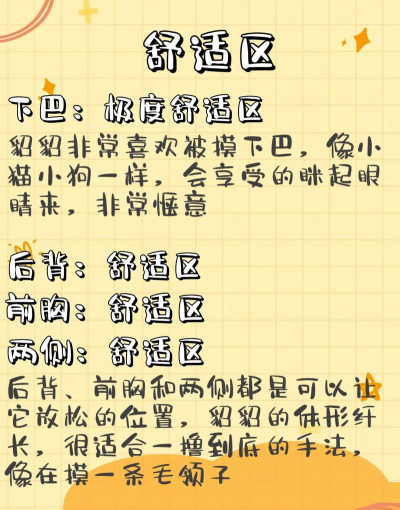 舒适区
下巴：极度舒适区
貂貂非常喜欢被摸下巴，像小
猫小狗一样，会享受的眯起眼
睛来，非常惬意
后背：舒适区
前胸：舒适区
两侧：舒适区
后背、前胸和两侧都是可以让
它放松的位置，貂貂的体形纤
长，很适合一撸到底的手法，
像在摸一条毛领子